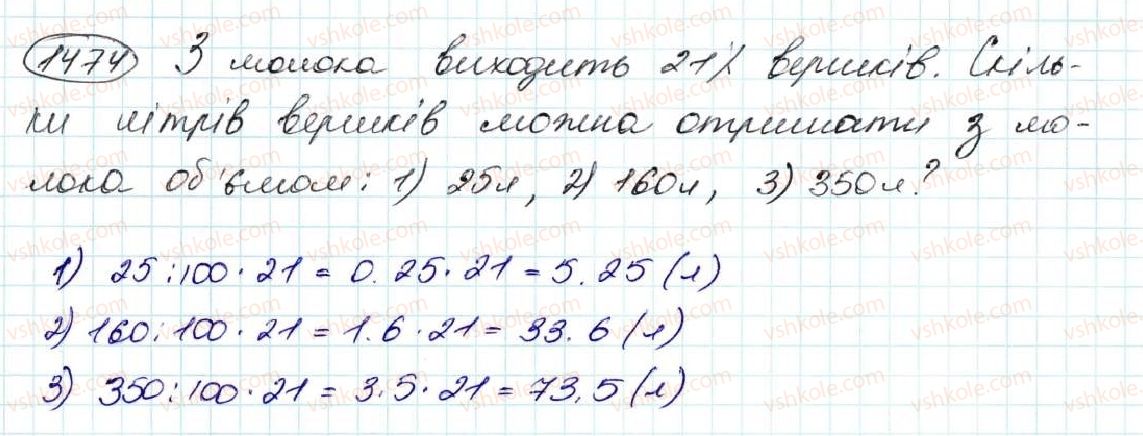 1474 З молока виходить 21% вершків. Скіль-
ки літрів вершків можна отримати з мо-
лока об'ємом: 1) 25л, 2) 160л, 3) 350л?
1) 25:100·21 = 0.25·21 = 5.25 (л)
2) 160:100·21 = 1.6·21 = 33.6 (л)
3) 350:100·21 = 3.5·21 = 73.5 (л)